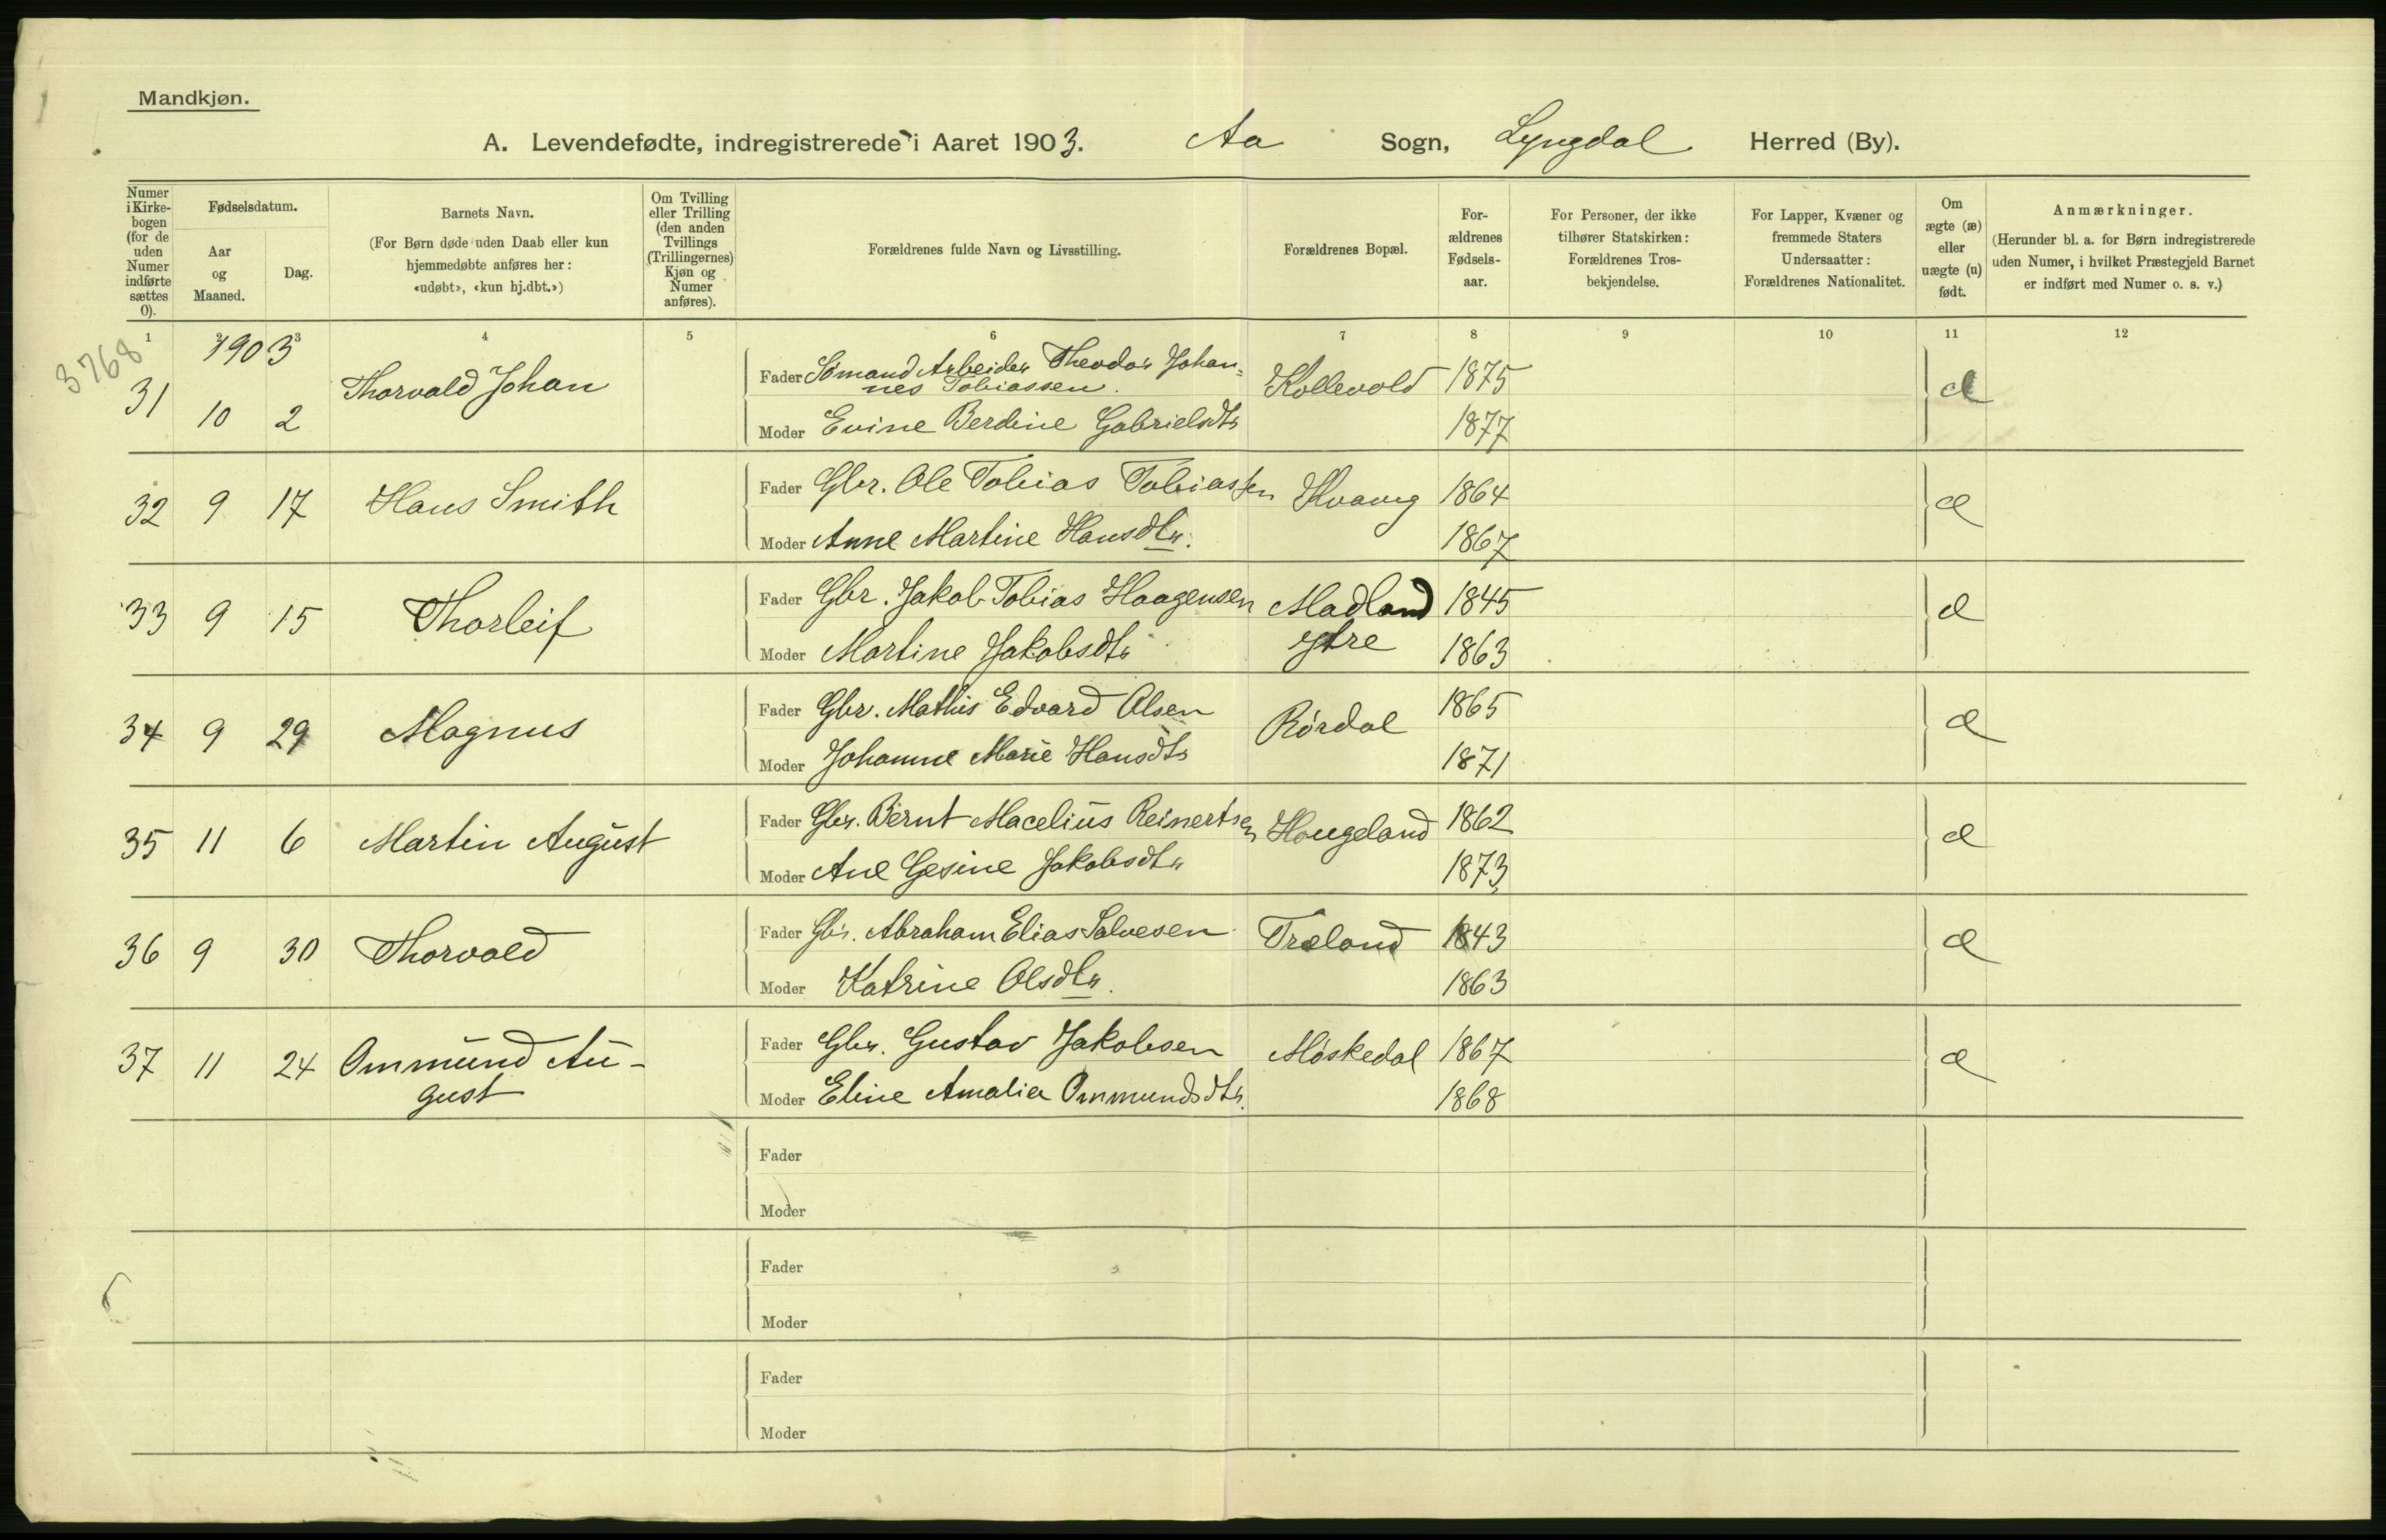 Mandkjøn.
A. Levendefødte, indregistrerede i Aaret 1903. Aa Sogn, Lyngdal Herred (By).
Numer i Kirkebogen (for de uden Numer indførte sættes 0).
Fødselsdatum.
Aar og Maaned.
Dag.
Barnets Navn.
(For Børn døde uden Daab eller kun
hjemmedøbte anføres her:
«udøbt», «kun hj.dbt.»)
Om Tvilling
eller Trilling
(den anden
Tvillings
(Trillingernes)
Kjøn og
Numer
anføres).
Forældrenes fulde Navn og Livsstilling.
Forældrenes Bopæl.
For-
ældrenes
Fødsels-
aar.
For Personer, der ikke
tilhører Statskirken:
Forældrenes Tros-
bekjendelse.
For Lapper, Kvæner og
fremmede Staters
Undersaatter:
Forældrenes Nationalitet.
Om
ægte (æ)
eller
uægte (u)
født.
Anmærkninger.
(Herunder bl. a. for Børn indregistrerede
uden Numer, i hvilket Præstegjeld Barnet
er indført med Numer o. s. v.)
1 2 3 4 5 6 7 8 9 10 11 12
3768
1903
31 10 2 Thorvald Johan
Fader Sømand Arbeider Theodor Johan=
nes Tobiassen. Kollevold 1875 æ
Moder Evine Berdine Gabrielsdtr 1877
32 9 17 Hans Smith
Fader Gbr. Ole Tobias Tobiassen Kvavig 1864 æ
Moder Anne Martine Hansdtr. 1867
33 9 15 Thorleif
Fader Gbr. Jakob Tobias Haagensen Madland 1845 æ
ytre
Moder Martine Jakobsdtr 1863
34 9 29 Magnus
Fader Gbr. Mathis Edvard Olsen Rørdal 1865 æ
Moder Johanne Marie Hansdtr 1871
35 11 6 Martin August
Fader Gbr. Bernt Macelius Reinertsen Haugeland 1862 æ
Moder Ane Gesine Jakobsdtr 1873
36 9 30 Thorvald
Fader Gbr. Abraham Elias Salvesen Træland 1843 æ
Moder Katrine Olsdtr. 1863
37 11 24 Ommund Au-
gust
Fader Gbr. Gustav Jakobsen Møskedal 1867 æ
Moder Eline Amalia Ommundsdtr. 1868
Fader
Moder
Fader
Moder
Fader
Moder